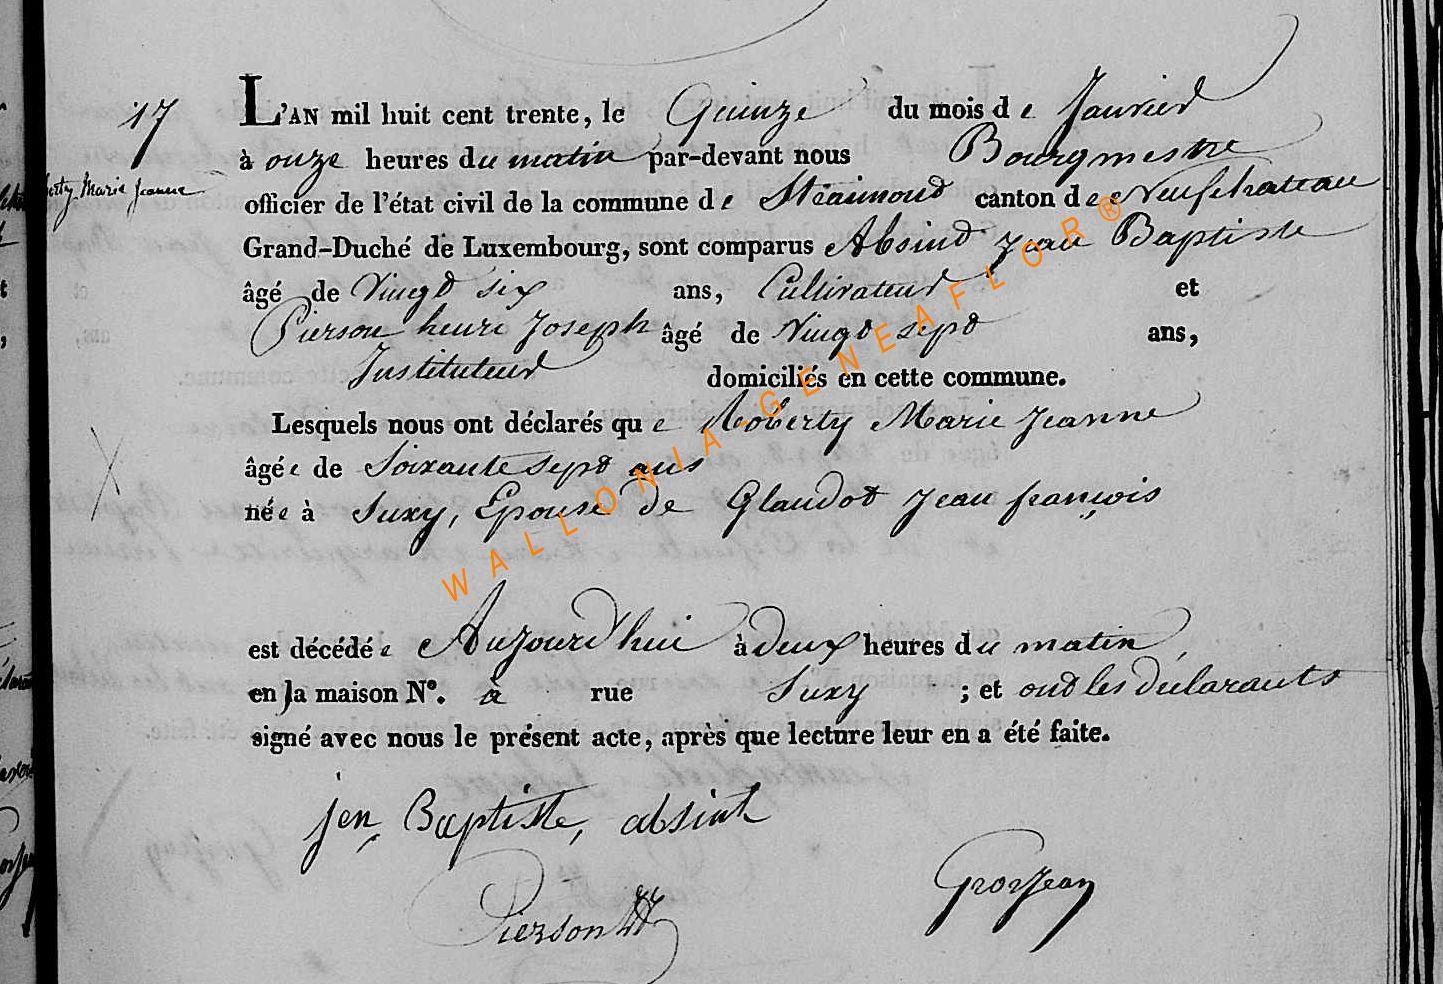 17
L'AN mil huit cent trente, le Quinze du mois de Janvier
à onze heures du matin par-devant nous Bourgmestre
erty Marie Jeanne
officier de l'état civil de la commune de Straimont canton de Neufchateau
Grand-Duché de Luxembourg, sont comparus Absind Jean Baptiste
âgé de Vingt six ans, Cultivateur et
Pierson henri Joseph âgé de Vingt sept ans,
Instituteur domiciliés en cette commune.
Lesquels nous ont déclarés que Roberty Marie Jeanne
âgée de Soixante sept ans
née à Suxy, Epouse de Glaudot Jean françois
est décédée Aujourd'hui à deux heures du matin,
en la maison N°. à rue Suxy ; et ont les déclarants
signé avec nous le présent acte, après que lecture leur en a été faite.
jen Baptiste, absint
Pierson
Grosjean
WALLONIA-GENEAFLOR®